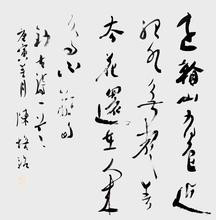 遠看山有色近
聽水無聲春
去花還在人來
鳥不驚
錄古詩一首
庚寅 月 陳